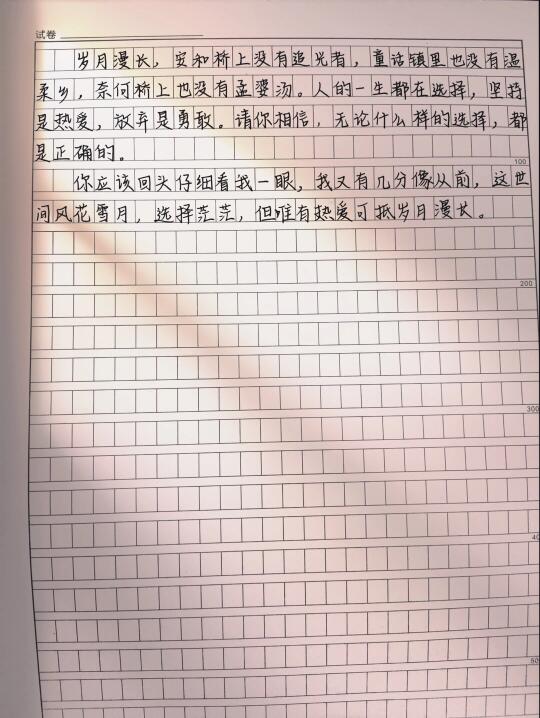 试卷
岁月漫长，安和桥上没有追光者，童话镇里也没有温
柔乡，奈何桥上也没有孟婆汤。人的一生都在选择，坚持
是热爱，放弃是勇敢。请你相信，无论什么样的选择，都
是正确的。
100
你应该回头仔细看我一眼，我又有几分像从前，这世
间风花雪月，选择茫茫，但唯有热爱可抵岁月漫长。
200
300